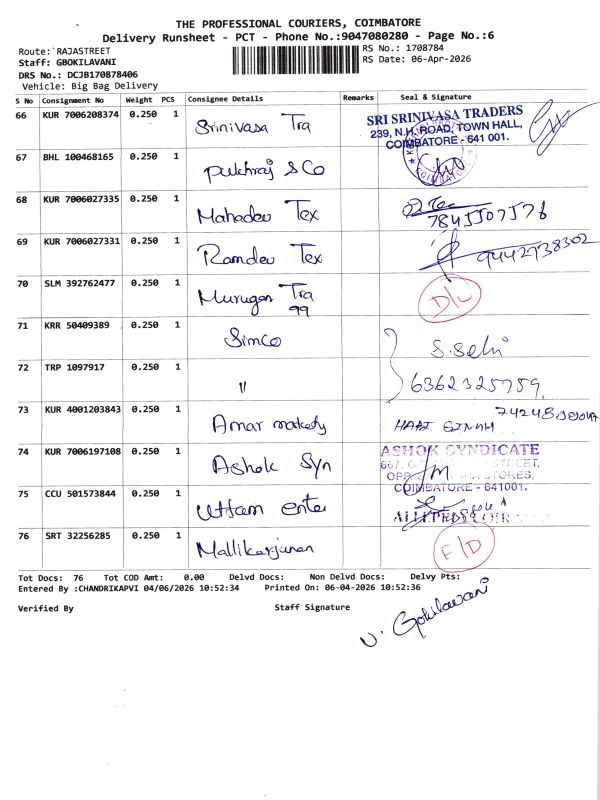 THE PROFESSIONAL COURIERS, COIMBATORE
Delivery Runsheet - PCT - Phone No.:9047080280 - Page No.:6
Route: RAJASTREET
Staff: GBOKILAVANI
DRS No.: DCJB170878406
Vehicle: Big Bag Delivery
RS No.: 1708784
RS Date: 06-Apr-2026
S No Consignment No Weight PCS Consignee Details Remarks Seal & Signature
66 KUR 7006208374 0.250 1 Srinivasa Tra
SRI SRINIVASA TRADERS
239, N.H. ROAD, TOWN HALL,
COIMBATORE - 641 001.
67 BHL 100468165 0.250 1 Pukhraj S Co
68 KUR 7006027335 0.250 1 Mahadev Tex
7845507576
69 KUR 7006027331 0.250 1 Ramdev Tex 9442738302
70 SLM 392762477 0.250 1 Murugan Tra D/L
99
71 KRR 50409389 0.250 1 Simco S. Selvi
72 TRP 1097917 0.250 1 " 6362325759
73 KUR 4001203843 0.250 1 Amar
74 KUR 7006197108 0.250 1 Ashok Syn
ASHOK SYNDICATE
COIMBATORE - 641001.
75 CCU 501573844 0.250 1 Uttam enter
76 SRT 32256285 0.250 1 Mallikarjunan F/D
Tot Docs: 76 Tot COD Amt: 0.00 Delvd Docs: Non Delvd Docs: Delvy Pts:
Entered By :CHANDRIKAPVI 04/06/2026 10:52:34 Printed On: 06-04-2026 10:52:36
Verified By Staff Signature
V. Gokilavani